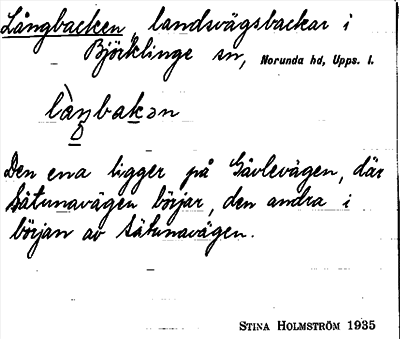 Långbacken, landsvägsbackar i
Björklinge sn, Norunda hd, Upps. l.
là̱ŋbakən
Den ena ligger på Gävlevägen, där
Sätunavägen börjar, den andra i
början av Sätunavägen.
STINA HOLMSTRÖM 1935